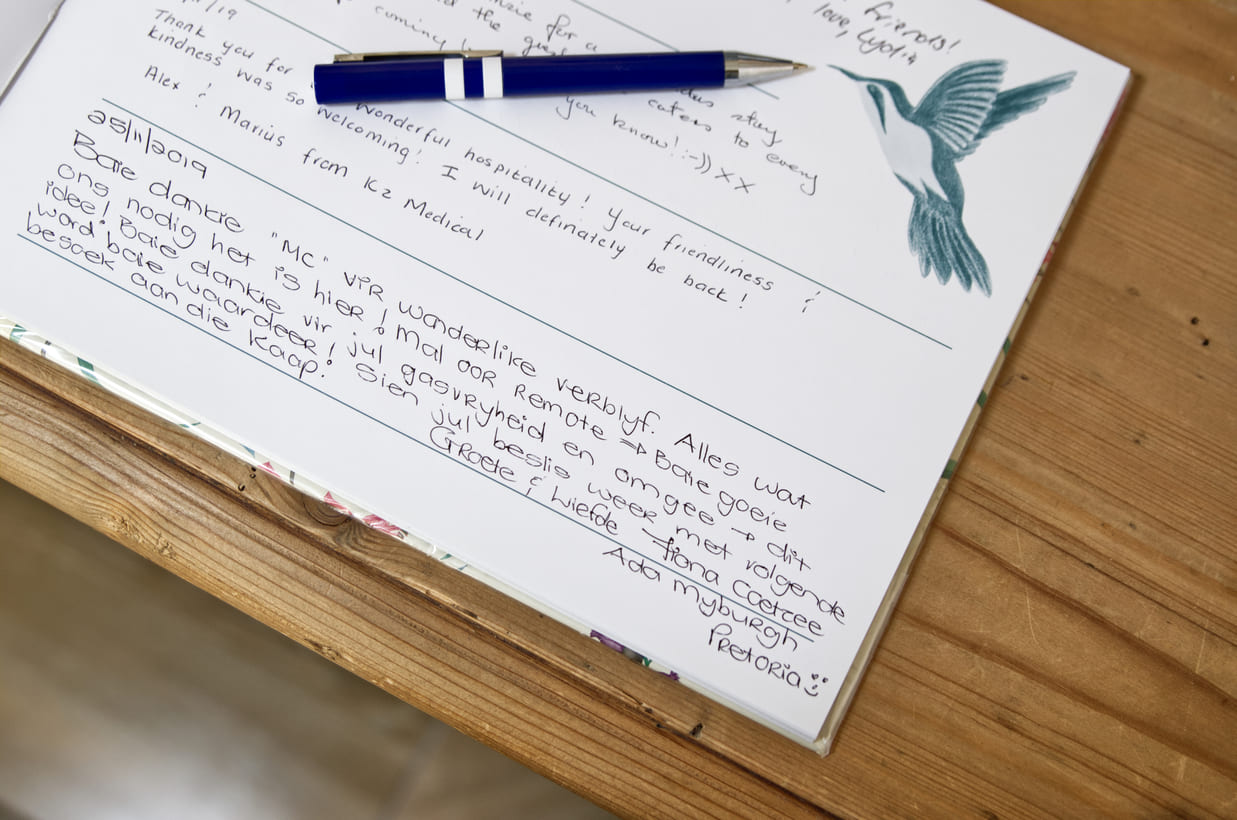 for a
friends!
love, Lydia
the
stay
coming
caters to every
you know! :-)) x x
/19
Thank you for wonderful hospitality! Your friendliness &
kindness was so welcoming! I will definately be back!
Alex & Marius from K2 Medical
25/11/2019
Baie dankie "MC" vir wonderlike verblyf. Alles wat
ons nodig het is hier! Mal oor Remote → Baie goeie
idee! Baie dankie vir jul gasvryheid en omgee → dit
word baie waardeer! Sien jul beslis weer met volgende
besoek aan die Kaap!
Groete & Liefde - Fiona Coetzee
Ada Myburgh
Pretoria